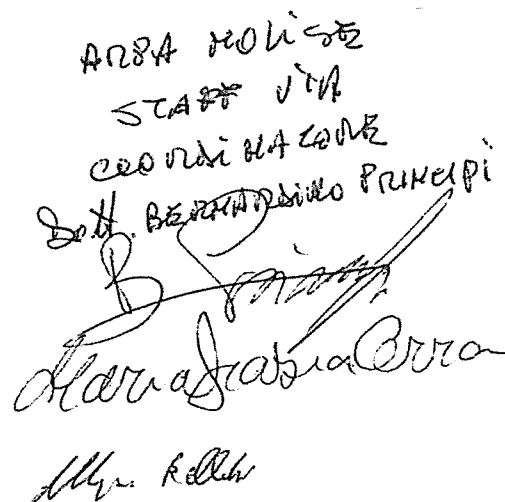 ARPA MOLISE
STAFF VIA
COORDINATORE
Dott. BERNARDINO PRINCIPI
B Principi
Maria Grazia Cerrone